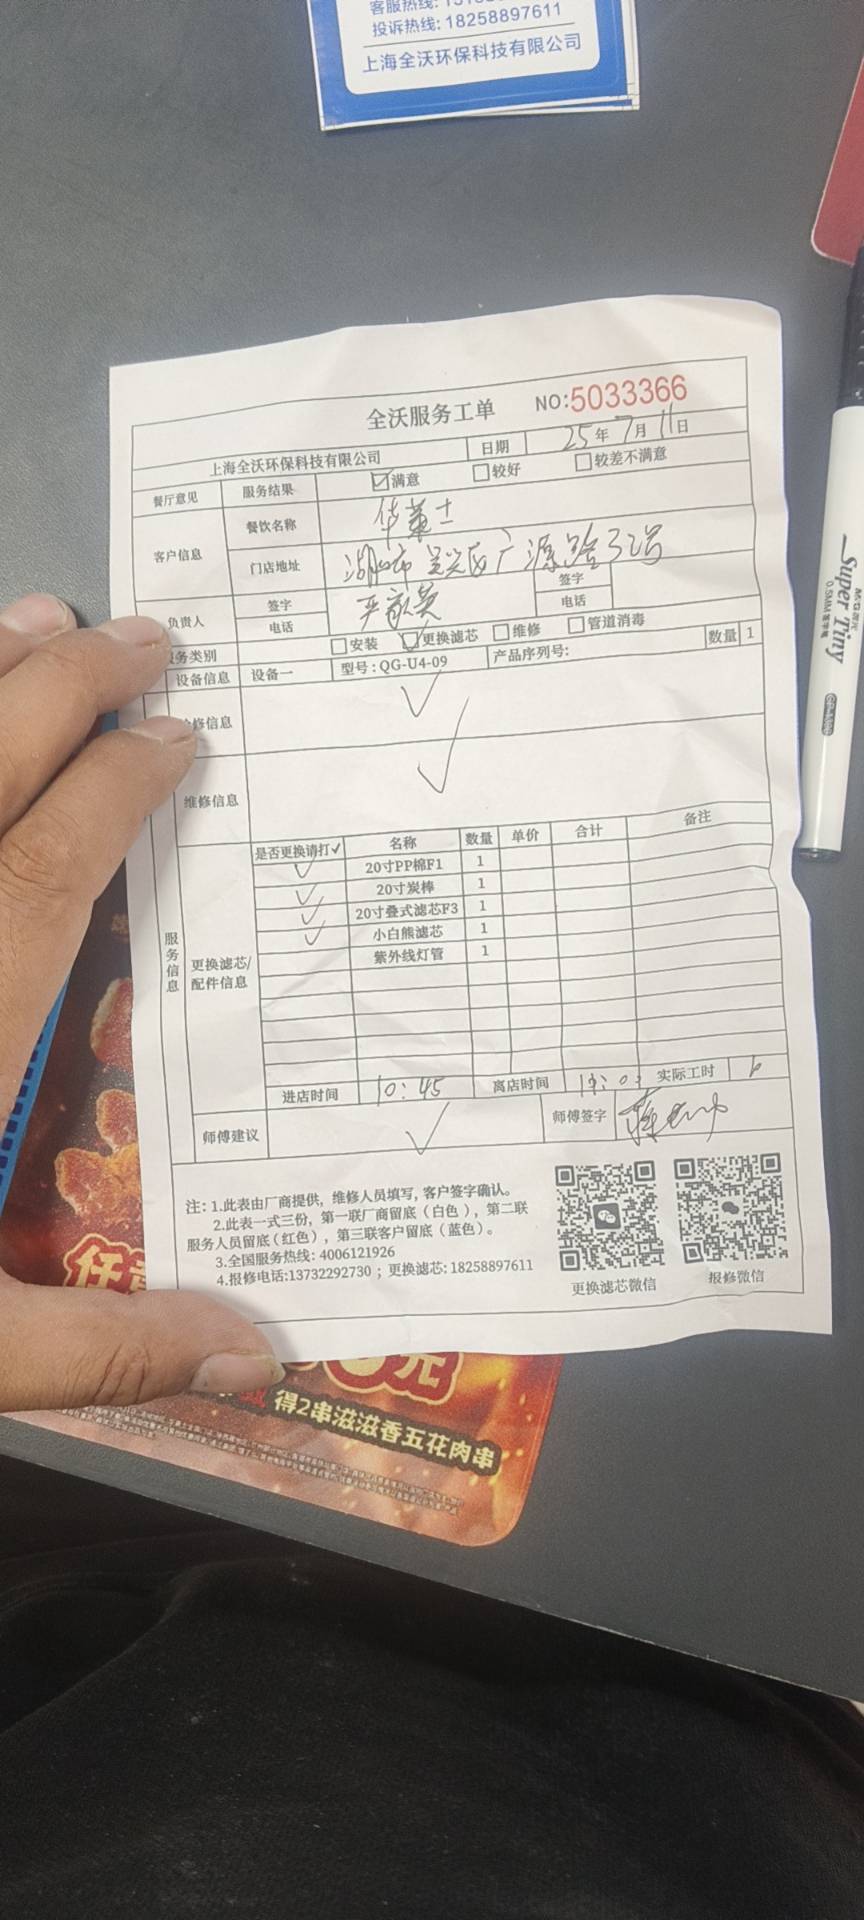 投诉热线: 18258897611
上海全沃环保科技有限公司
全沃服务工单 NO:5033366
上海全沃环保科技有限公司 日期 25年7月11日
餐厅意见 服务结果 满意 较好 较差不满意
客户信息 餐饮名称 华莱士
门店地址 湖州市吴兴区广源路32号
负责人 签字 签字
电话 电话
服务类别 安装 更换滤芯 维修 管道消毒
设备信息 设备一 型号:QG-U4-09 产品序列号: 数量 1
修信息
维修信息
服务信息
更换滤芯/配件信息
是否更换请打✓ 名称 数量 单价 合计 备注
✓ 20寸PP棉F1 1
✓ 20寸炭棒 1
✓ 20寸叠式滤芯F3 1
✓ 小白熊滤芯 1
紫外线灯管 1
进店时间 10:45 离店时间 实际工时
师傅建议 师傅签字
注: 1.此表由厂商提供, 维修人员填写, 客户签字确认。
2.此表一式三份, 第一联厂商留底(白色), 第二联
服务人员留底(红色), 第三联客户留底(蓝色)。
3.全国服务热线: 4006121926
4.报修电话:13732292730; 更换滤芯: 18258897611
更换滤芯微信 报修微信
Super Tiny
0.5MM
元
得2串滋滋香五花肉串